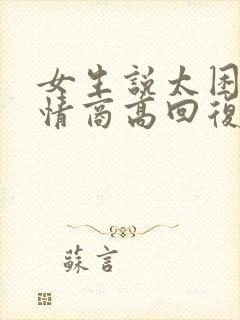 女生説太困
情商高回復
蘇言